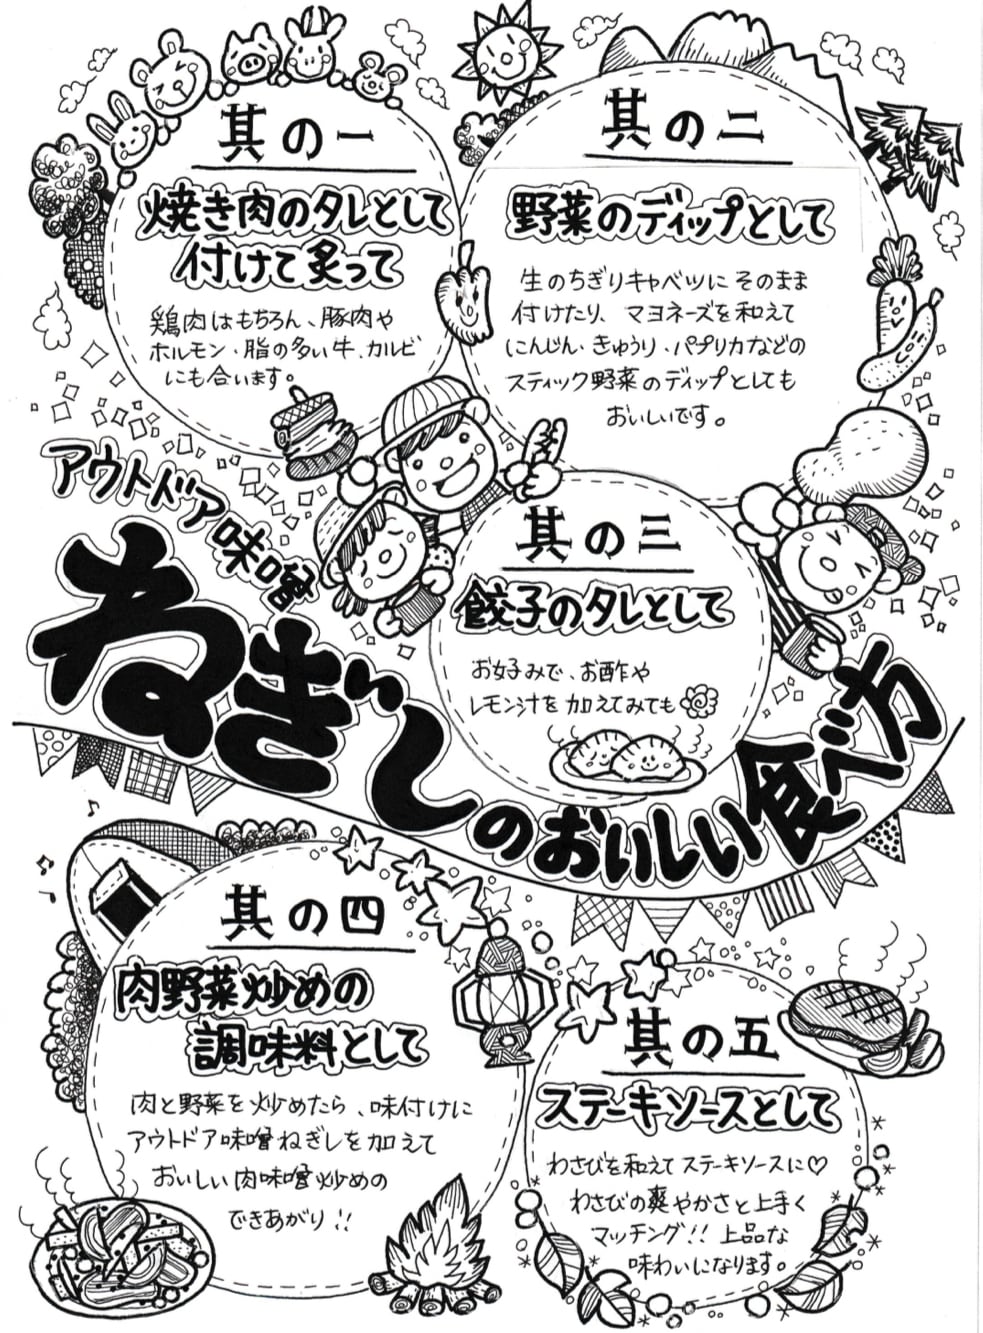 其の一
焼き肉のタレとして
付けて炙って
鶏肉はもちろん、豚肉や
ホルモン、脂の多い牛カルビ
にも合います。
其の二
野菜のディップとして
生のちぎりキャベツにそのまま
付けたり、マヨネーズを和えて
にんじん、きゅうり、パプリカなどの
スティック野菜のディップとしても
おいしいです。
アウトドア味噌
ねぎしのおいしい食べ方
其の三
餃子のタレとして
お好みで、お酢や
レモン汁を加えてみても
其の四
肉野菜炒めの
調味料として
肉と野菜を炒めたら、味付けに
アウトドア味噌ねぎしを加えて
おいしい肉味噌炒めの
できあがり!!
其の五
ステーキソースとして
わさびを和えてステーキソースに♡
わさびの爽やかさと上手く
マッチング!! 上品な
味わいになります。